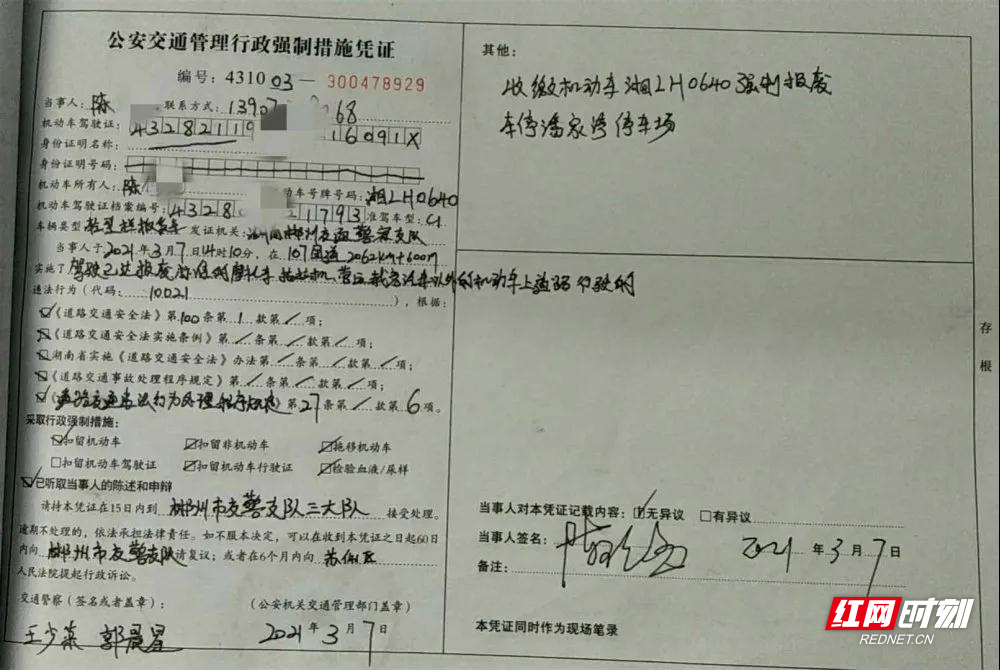 公安交通管理行政强制措施凭证
编号：43100 03 — 300478929
当事人：陈 联系方式：1390 68
机动车驾驶证：432821119 16091X
身份证明名称：
身份证明号码：
机动车所有人：陈 动车号牌号码：湘LH0640
机动车驾驶证档案编号：4328 21793 准驾车型：C1
车辆类型 发证机关：
当事人于2021年3月7日14时10分，在107国道2062km+600m
实施了驾驶已达报废标准的摩托车、拖拉机、营运载客汽车以外的机动车上道路行驶的
违法行为（代码：10021），根据：
☑《道路交通安全法》第100条第1款第／项；
《道路交通安全法实施条例》第／条第／款第／项；
湖南省实施《道路交通安全法》办法第／条第／款第／项；
《道路交通事故处理程序规定》第／条第／款第／项；
☑（道路交通违法行为处理程序规定 第27条第／款第6项。
采取行政强制措施：
☑扣留机动车 ☑扣留非机动车 ☑拖移机动车
□扣留机动车驾驶证 ☑扣留机动车行驶证 ☑检验血液/尿样
☑已听取当事人的陈述和申辩
请持本凭证在15日内到 郴州市交警支队三大队 接受处理。
逾期不处理的，依法承担法律责任。如不服本决定，可以在收到本凭证之日起60日
内向 郴州市交警支队 请复议；或者在6个月内向 苏仙区
人民法院提起行政诉讼。
交通警察（签名或者盖章）： （公安机关交通管理部门盖章）
王少 郭晨星 2021年3月7日
其他：
收缴机动车湘LH0640强制报废
车停潘家湾停车场
当事人对本凭证记载内容：☑无异议 □有异议
当事人签名： 2021年3月7日
备注：
本凭证同时作为现场笔录
存
根
红网时刻
REDNET.CN